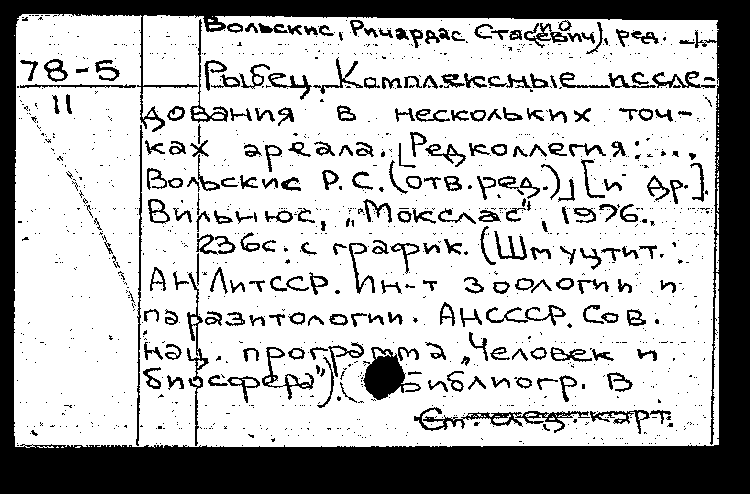 Вольскис, Ричардас Стасевич), ред.
78-5 Рыбец. Комплексные иссле-
11 дования в нескольких точ-
ках ареала. [Редколлегия: ...,
Вольскис Р.С. (отв. ред.)] [и др.].
Вильнюс, „Мокслас", 1976.
236с. с график. (Шмуцтит.:
АН ЛитССР. Ин-т зоологии и
паразитологии. АНСССР. Сов.
нац. программа „Человек и
биосфера"). Библиогр. в
См. след. карт.